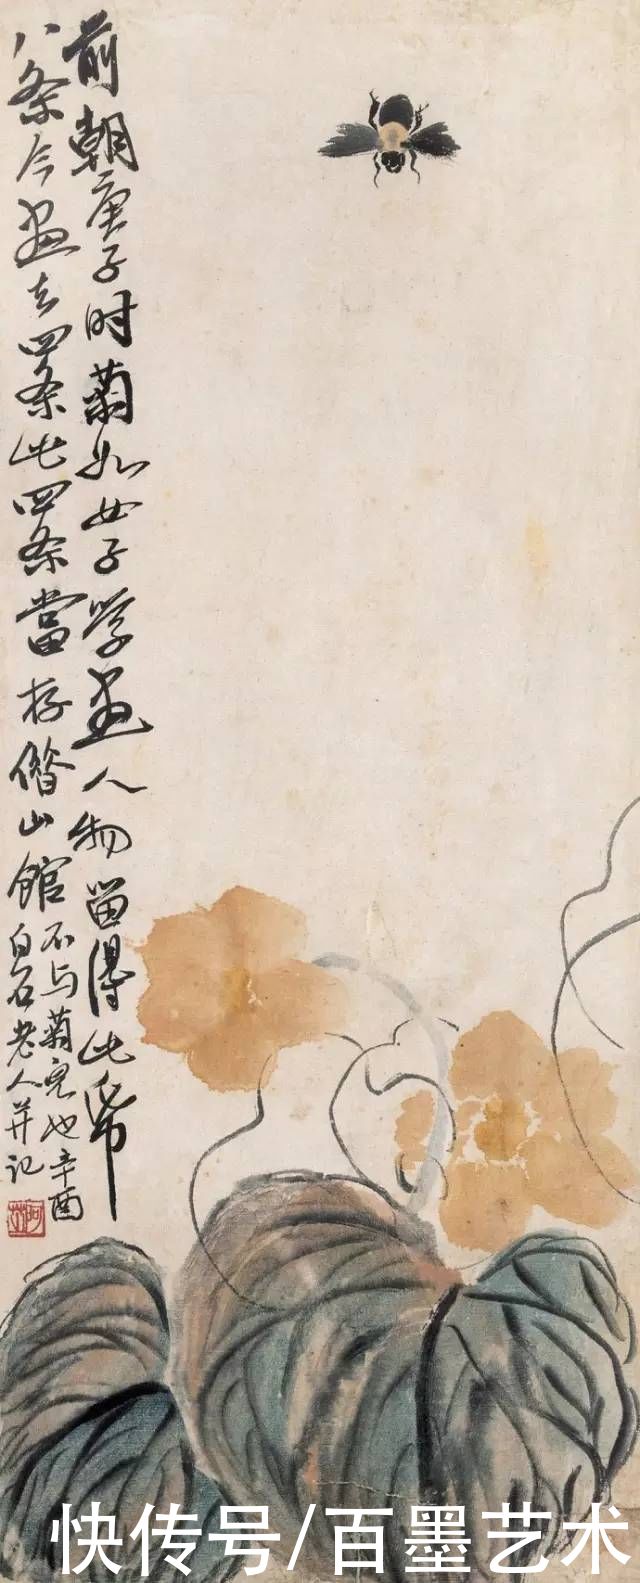 前朝庚子时菊如女子学画人物留得此帋
八条今画去四条此四条當存借山館
不与菊児也辛酉
白石老人并记
快传号/百墨艺术